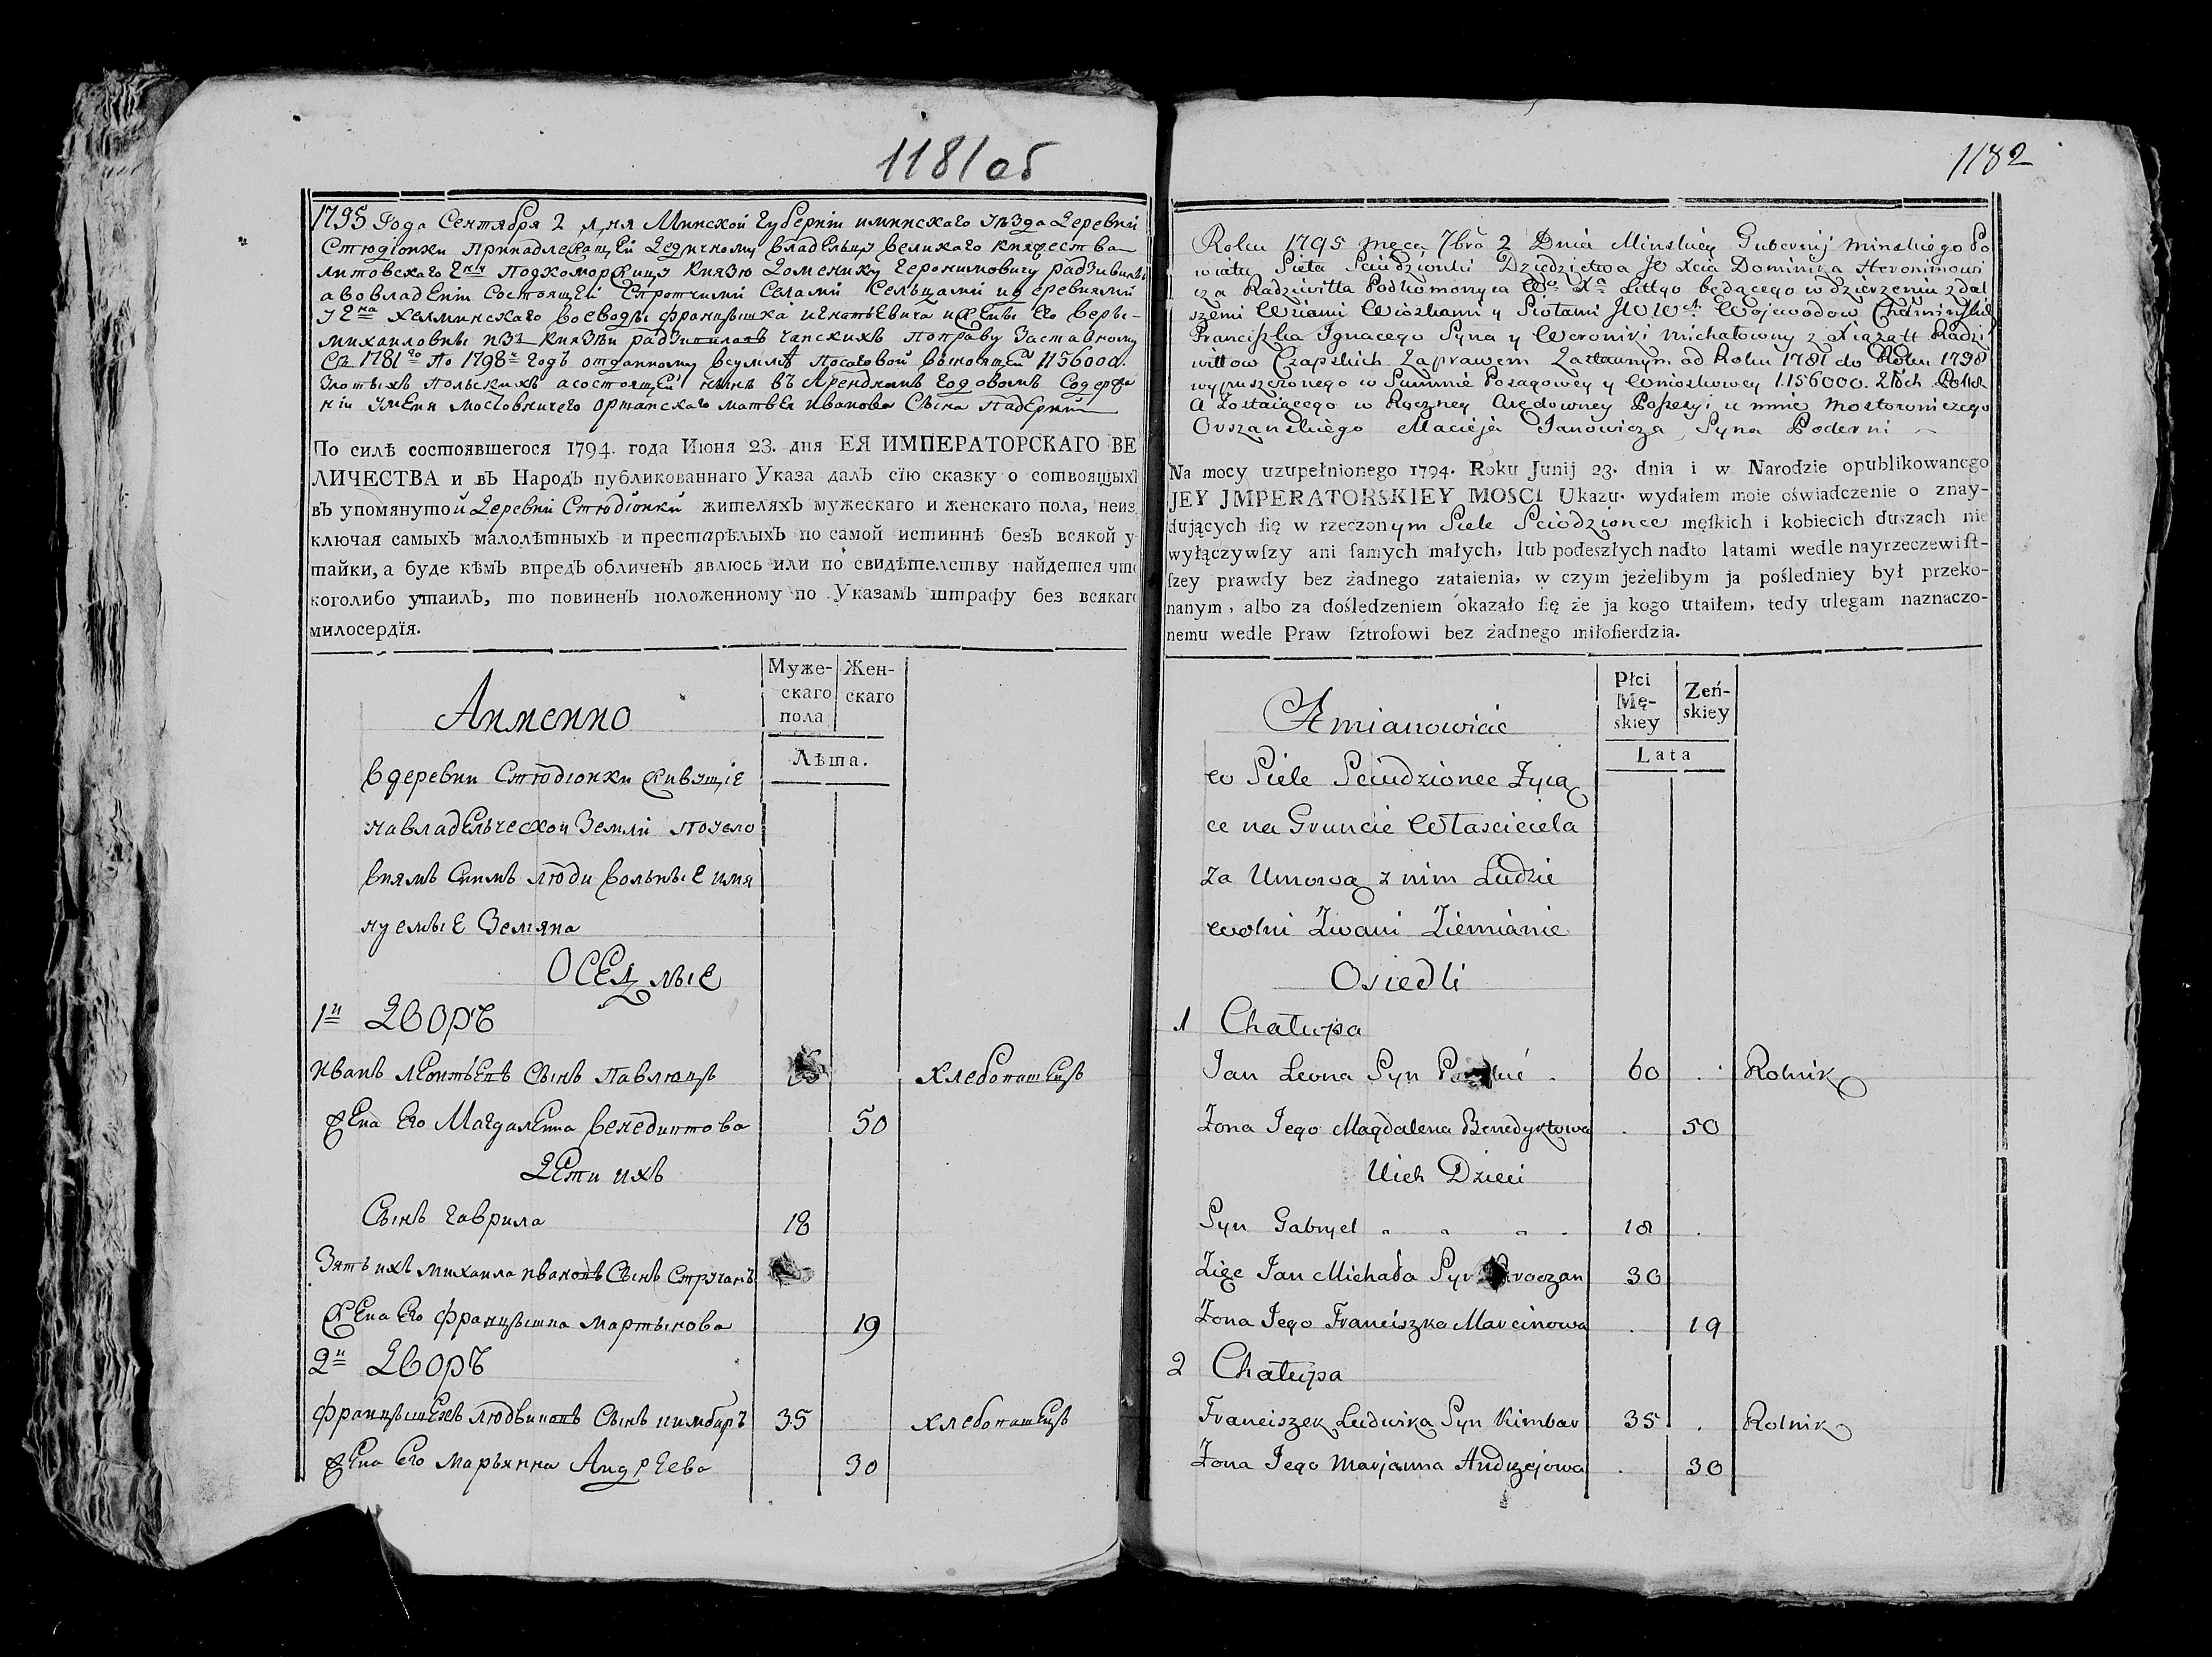 1181об
1795 Года Сентября 2 дня Минской Губернiи иминскаго уѣзда Деревни
Стюдiонки Принадлежащей Дедичному владельцу великаго княжества
литовскаго Подкоморжицу Князю Доменику Геронимовичу радзивилу
авовладенiи Состоящей Спротчими Селами Сельцами идеревнями
у Хелминскаго воеводы францышка игнатьевича ижены Его веры-
михаиловны изъ Князей радзивиловъ Чапскихъ поправу Заставному
Съ 1781го По 1798й годъ отданному всуммѣ Посаговой 1156000.
Злотыхъ польскихъ асостоящей нынѣ въ Арендномъ Годовомъ Содержа
нiи уменя мостовничего Оршанскаго матвея иванова Сына Падерни
По силѣ состоявшегося 1794. года Июня 23. дня ЕЯ ИМПЕРАТОРСКАГО ВЕ
ЛИЧЕСТВА и въ Народъ публикованнаго Указа далъ сїю сказку о сотвоящыхъ
въ упомянутой Деревни Стюдiонки жителяхъ мужескаго и женскаго пола, неиз
ключая самыхъ малолѣтныхъ и престарѣлыхъ по самой истиннѣ безъ всякой у
тайки, а буде кѣмъ впредъ обличенъ явлюсь или по свидѣтелству найдется что
коголибо утаилъ, то повиненъ положенному по Указамъ штрафу без всякаго
милосердїя.
Аименно
Муже-
скаго
пола
Жен-
скаго
Лѣта.
вдеревни Стюдiонки живущiе
навладельческой Земли поусло
виямъ Снимъ люди вольные имя
нуемые Земяна
ОСЕДлые
1й ДВОРЪ
иванъ леонтьевъ Сынъ Павлюць хлебопашецъ
жена Его Магдалена венедиктова 50
Дети ихъ
Сынъ гаврила 18
Зять ихъ михаила ивановъ Сынъ Стручанъ
жена Его францышка мартынова 19
2й ДВОРЪ
францышекъ людвиковъ Сынъ кимбаръ 35 хлебопашецъ
жена Его марьянна Андреева 30
1182
Roku 1795 męca 7bra 2 Dnia Minskiey Gubernij minskiego Po
wiatu Sieła Sciudzionki Dziedzictwa JO Xcia Dominika Heronimowi
cza Radziwiłła Podkomorzyca Wo Xa Littgo będącego w dzierzeniu z dal
szemi Wsiami Wioskami y Siołami JO W Wojewodow Chełminskich
Franciszka Ignacego Syna y Weroniki Michałowny z Xiążąt Radzi
wiłłow Czapskich Zaprawem Zastawnym od Roku 1781 do Roku 1798
wypuszczonego w Summie Posagowey y Wnioskowey 1.156000. Złłch Polch
a Zostaiącego w Roczney Arędowney Possesyi u mnie Mostowniczego
Orszanskiego Macieja Janowicza Syna Poderni
Na mocy uzupełnionego 1794. Roku Junij 23. dnia i w Narodzie opublikowanego
JEY JMPERATORSKIEY MOSCI Ukazu. wydałem moie oświadczenie o znay-
dujących ſię w rzeczonym Siele Sciodzionce męſkich i kobiecich duszach nie
wyłączywſzy ani ſamych małych, lub podeszłych nadto latami wedle nayrzeczewiſt-
ſzey prawdy bez żadnego zataienia, w czym jeżelibym ja pośledniey był przeko-
nanym, albo za dośledzeniem okazało ſię że ja kogo utaiłem, tedy ulegam naznaczo-
nemu wedle Praw ſztrofowi bez żadnego miłoſierdzia.
A mianowicie
Płci
Mę-
skiey
Zeń-
skiey
Lata
w Siele Sciudzionce Żyią
ce na Gruncie Własciciela
za Umową z nim Ludzie
wolni Zwani Ziemianie
Osiedli
1 Chałupa
Jan Leona Syn 60 Rolnik
Żona Jego Magdalena Benedyktowa 50
Uich Dzieci
Syn Gabryel 18
Zięc Jan Michała Syn 30
Żona Jego Franciszka Marcinowa 19
2 Chałupa
Franciszek Ludwika Syn Kimbar 35 Rolnik
Żona Jego Marjanna Andrzejowa 30